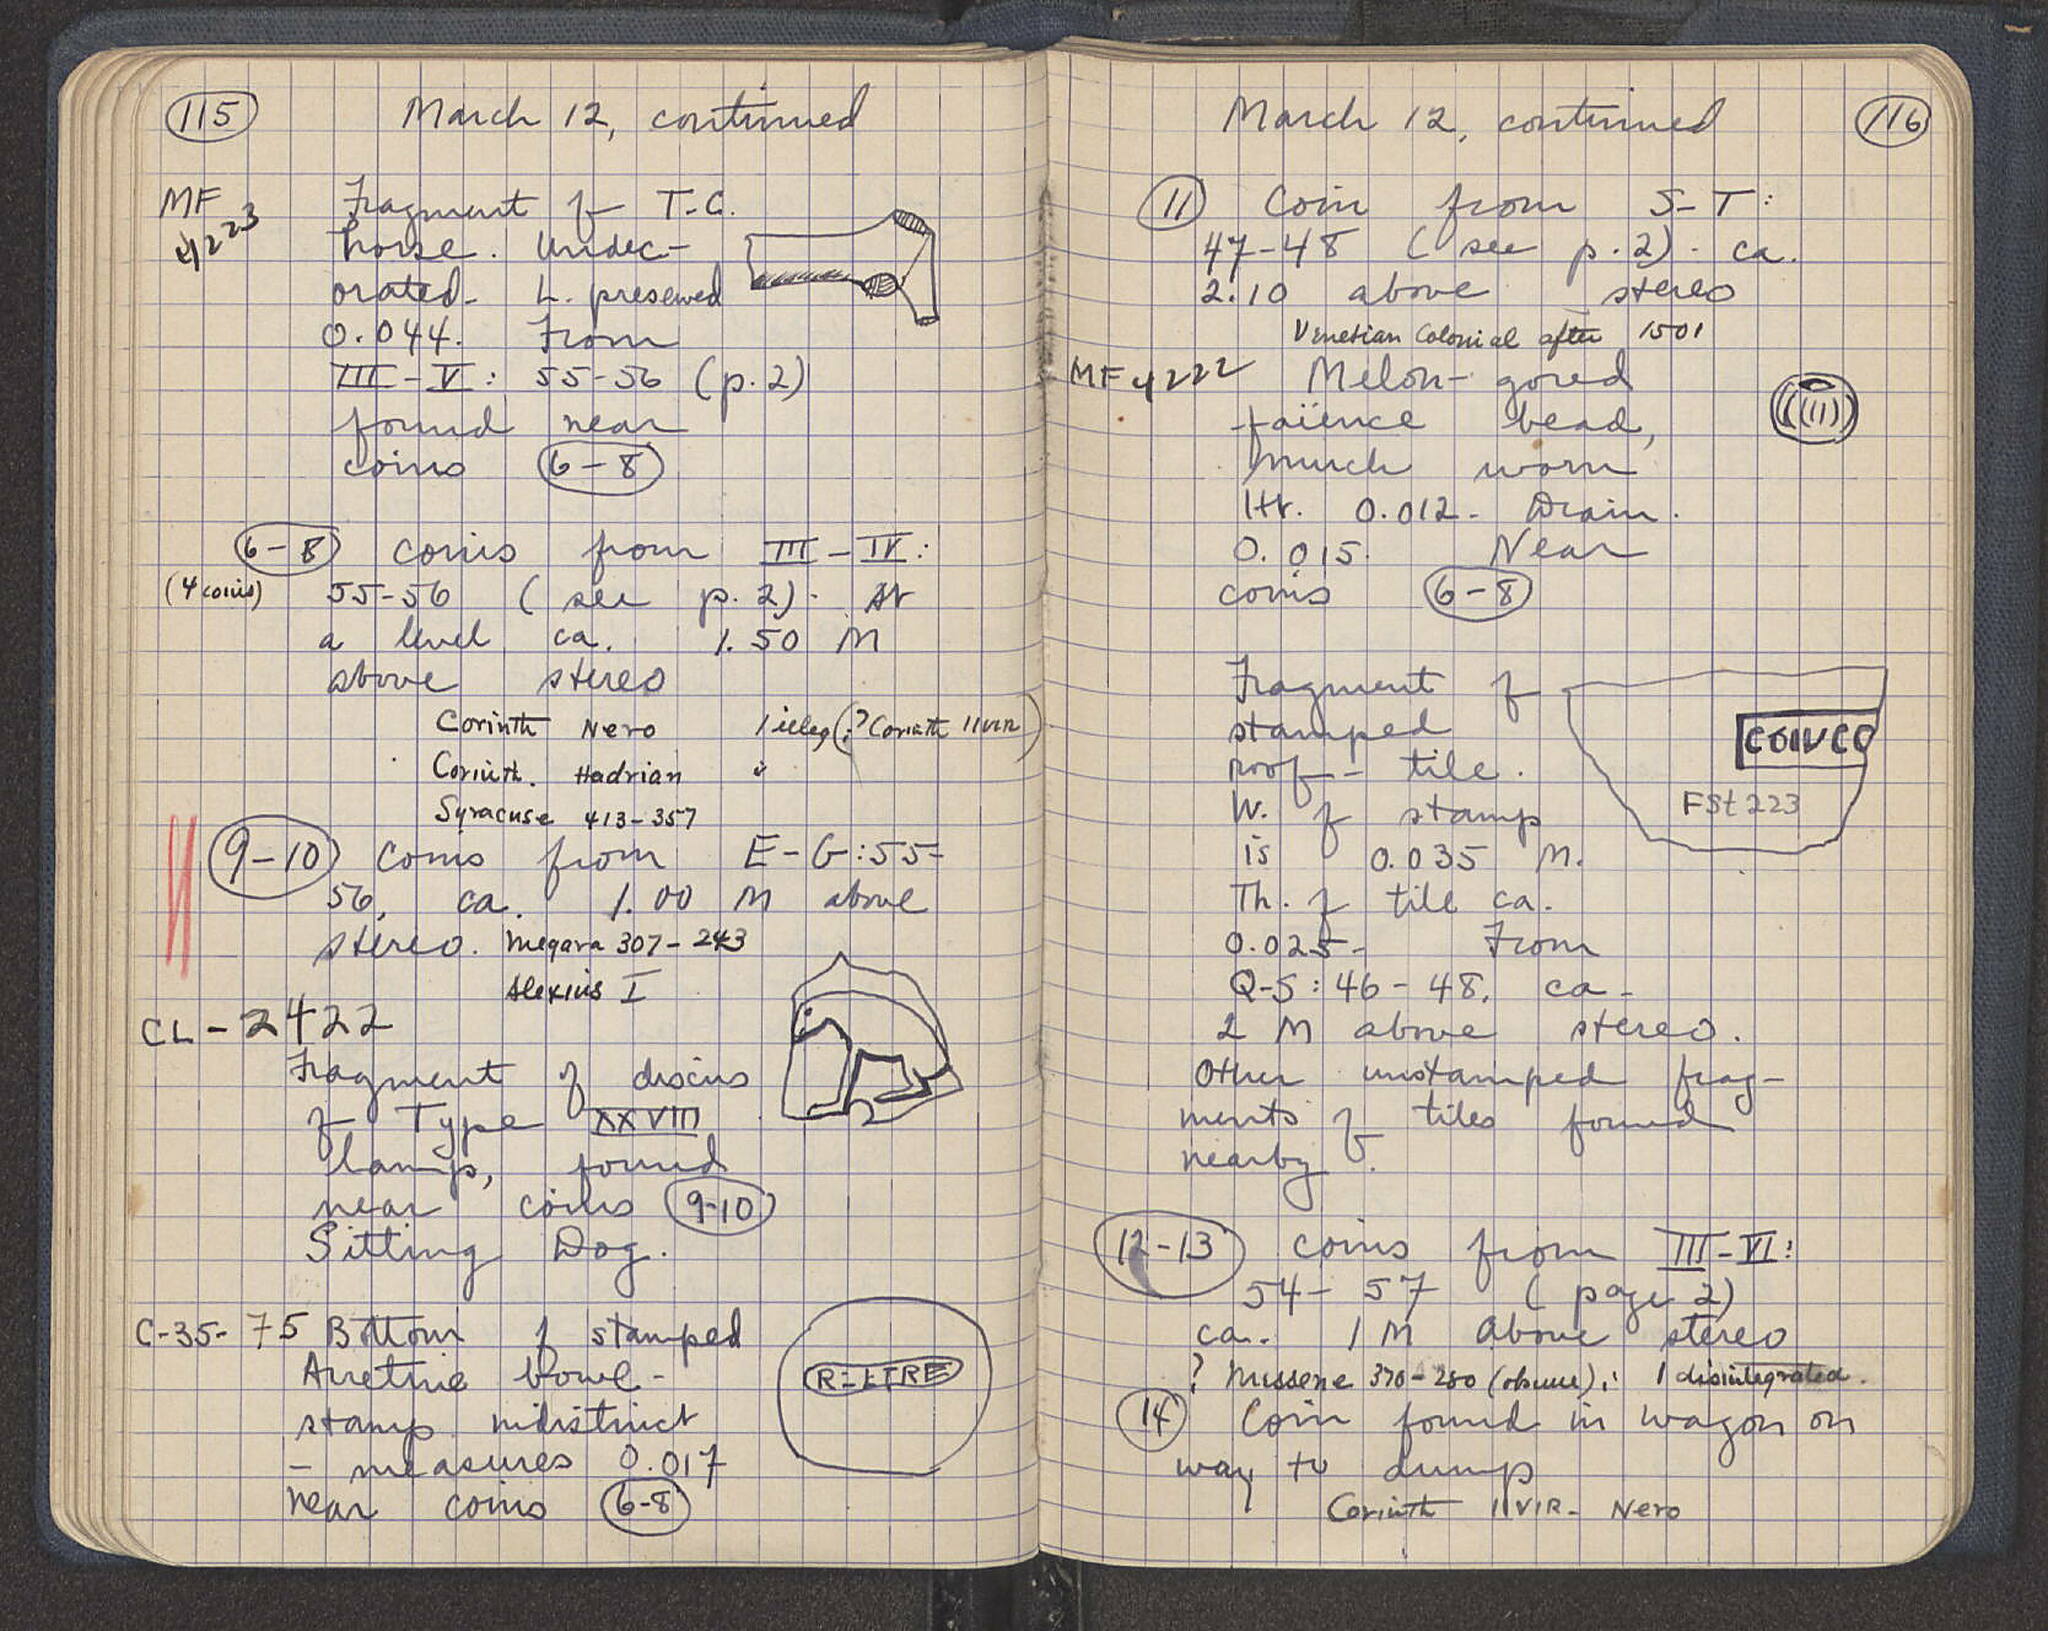 115 March 12, continued
MF 4223
Fragment of T-C.
horse. Undec-
orated. L. preserved
0.044. From
III-V: 55-56 (p.2)
found near
coins 6-8
6-8 coins from III-IV:
(4 coins) 55-56 (see p.2). At
a level ca. 1.50 M
above stereo
Corinth Nero 1 illeg (? Corinth IIVIR)
Corinth. Hadrian
Syracuse 413-357
9-10 coins from E-G:55-
56, ca. 1.00 M above
stereo. Megara 307-243
Alexius I
CL-2422
Fragment of discus
of Type XXVIII
lamp, found
near coins 9-10
Sitting Dog.
C-35-75 Bottom of stamped
Arretine bowl-
stamp indistinct
- measures 0.017
near coins 6-8
March 12, continued 116
11 Coin from S-T:
47-48 (see p.2). ca.
2.10 above stereo
Venetian Colonial after 1501
MF 4222 Melon-gored
faïence bead,
much worn
Ht. 0.012. Diam.
0.015. Near
coins 6-8
Fragment of
stamped
roof-tile.
W. of stamp
is 0.035 M.
Th. of tile ca.
0.025- From
Q-S:46-48, ca-
2 M above stereo.
Other unstamped frag-
ments of tiles found
nearby.
COIVCO
FSt 223
12-13 coins from III-VI:
54-57 (page 2)
ca. 1 M above stereo
? Messene 370-280 (obscure); 1 disintegrated.
14 Coin found in wagon on
way to dump
Corinth IIVIR- Nero